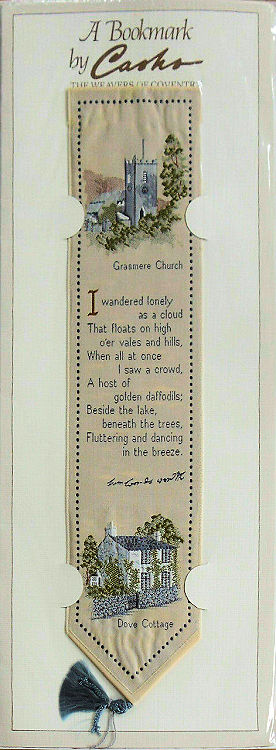 A Bookmark
by Cash's
THE WEAVERS OF COVENTR
Grasmere Church
I wandered lonely
as a cloud
That floats on high
o'er vales and hills,
When all at once
I saw a crowd,
A host of
golden daffodils;
Beside the lake,
beneath the trees,
Fluttering and dancing
in the breeze.
Dove Cottage